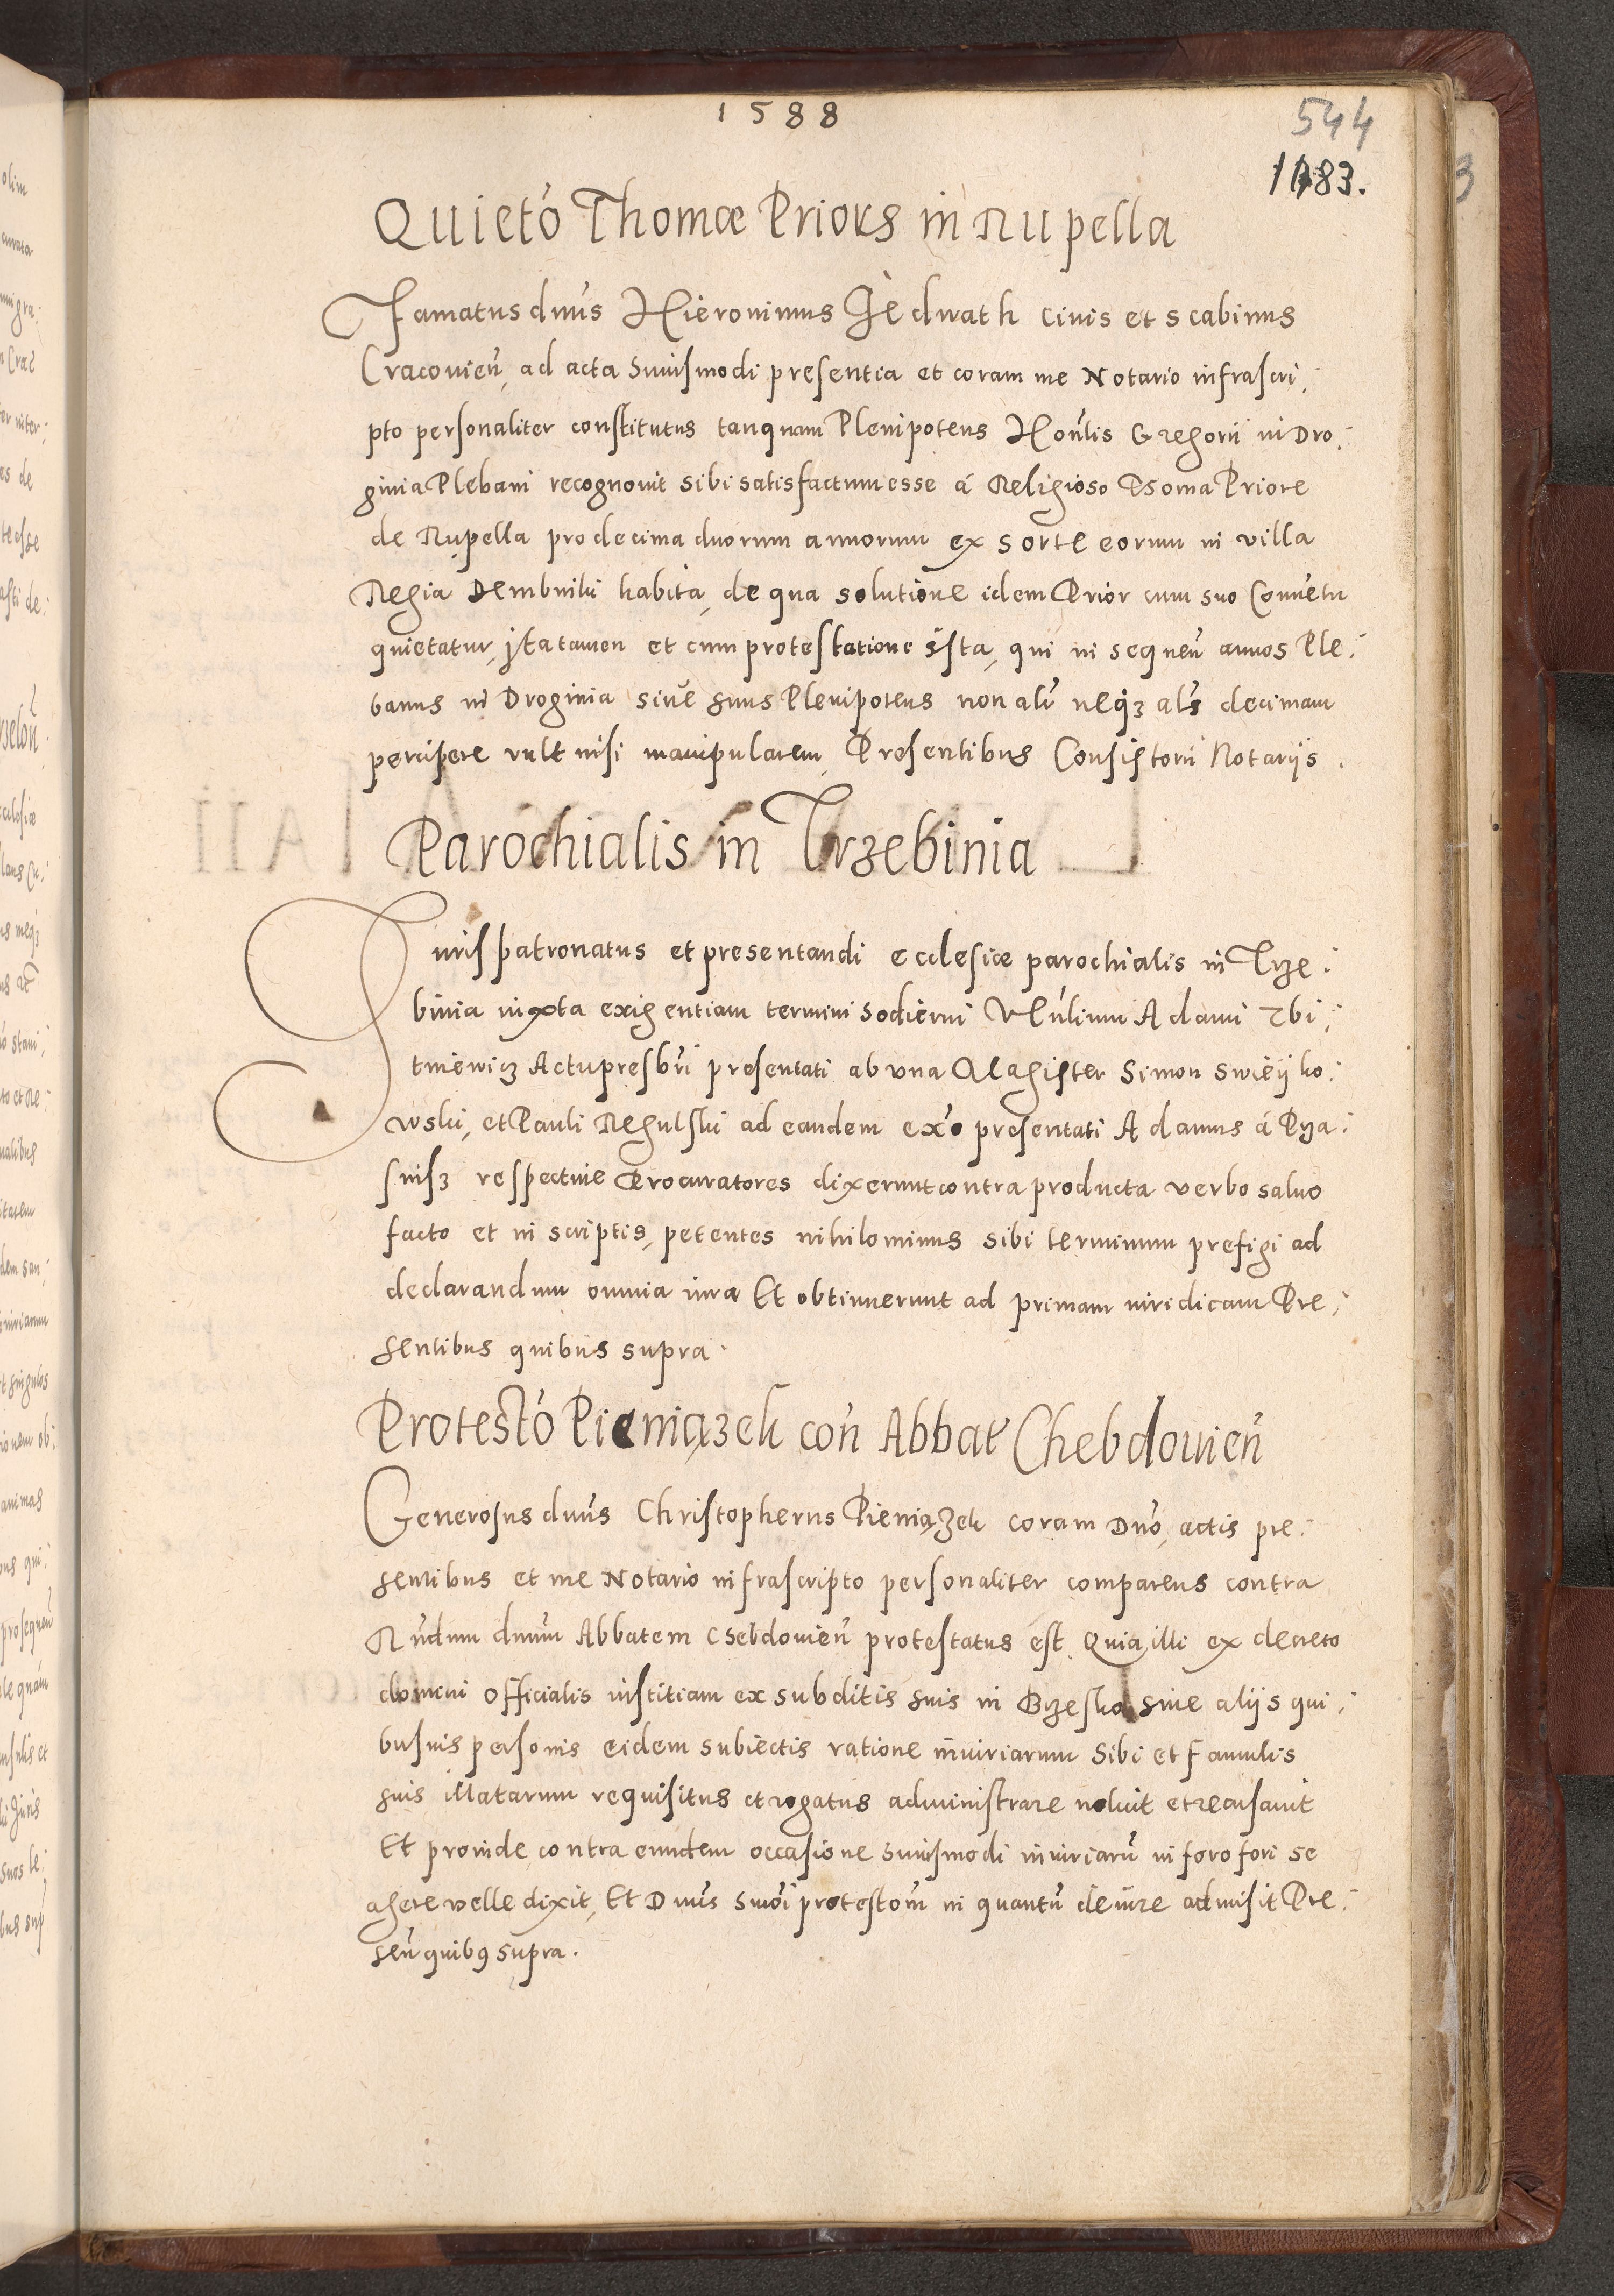 1588
544
1183.
Quieto Thomæ Prioris in Rupella
Famatus dnus Hieronimus Jedwath Civis et scabinus
Cracovien, ad acta huiusmodi presentia et coram me Notario infrascri:
pto personaliter constitutus tanquam Plenipotens Honlis Gregorii in Dro:
ginia Plebani recognovit sibi satisfactum esse á Religioso Thoma Priore
de Rupella pro decima duorum annorum ex sorte eorum in villa
Regia Dembniki habita, de qua solutione idem Prior cum suo Convetu
quietatur, jta tamen et cum protestatione ista, qui in sequen annos Ple:
banus in Droginia sive suus Plenipotens non alr neqz als decimam
percipere vult nisi manipularem, Presentibus Consistorii Notarijs.
Parochialis in Trzebinia
Juris patronatus et presentandi ecclesiæ parochialis in Trze:
binia iuxta exigentiam termini hodierni Vlenlium Adami Zbi:
tniewicz Actu presbri presentati ab vna Magister Simon Swieijko:
wski, et Pauli Regulski ad eandem exo presentati Adamus á Prza:
suisz respective Procuratores dixerunt contra producta verbo salvo
facto et in scriptis, petentes nihilominus sibi terminum prefigi ad
declarandum omnia iura Et obtinuerunt ad primam iuridicam Pre:
sentibus quibus supra.
Protesto Pieniązek con Abbat Chebdovien
Generosus dnus Christopherus Pieniązek coram Dno, actis pre:
sentibus et me Notario infrascripto personaliter comparens contra
Rndum dnum Abbatem Chebdovien protestatus est. Quia illi ex decreto
domini Officialis iustitiam ex subditis suis in Brzesko sive alijs qui:
busvis personis eidem subiectis ratione iniuriarum sibi et famulis
suis illatarum requisitus et rogatus administrare noluit et recusavit
Et proinde contra eundem occasione huiusmodi iniuriaru in foro fori se
agere velle dixit, Et Dnus hmoi protestom in quantu de iure admisit Pre:
sen quibq supra.